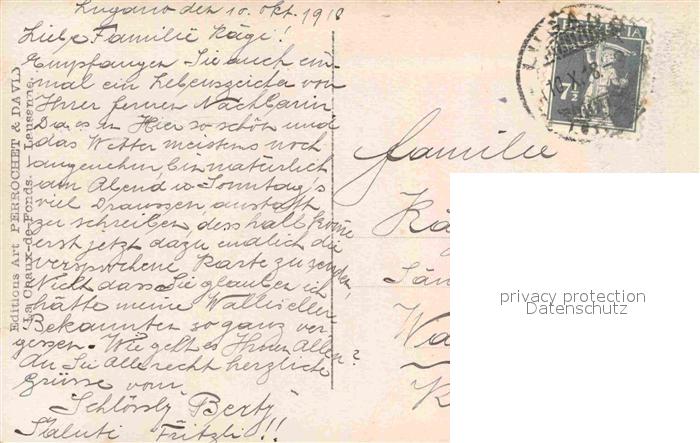 Lugano den 10. Okt. 1918
Liebe Familie Kägi!
Empfangen Sie auch ein-
mal ein Lebenszeichen von
Ihrer fernen Nachbarin
Da es in Hier so schön und
das Wetter meistens noch
angenehm, bin natürlich
am Abend, u. Sonntag's
viel Draussen, anstatt
zu schreiben, desshalb komme
erst jetzt dazu endlich die
versprochene Karte zu senden,
Nicht dass Sie glauben ich
hätte meine Walliseller
Bekannten so ganz ver-
gessen. Wie geht es Ihnen Allen?
An Sie Alle recht herzliche
Grüsse vom
Schlössly Berty
Saluti Fritzli!!
Editions Art PERROCHET & DAVID
La Chaux-de-Fonds. Lausanne.
Familie
Kä
Wa
HELVETIA
7½
LUGANO
privacy protection
Datenschutz